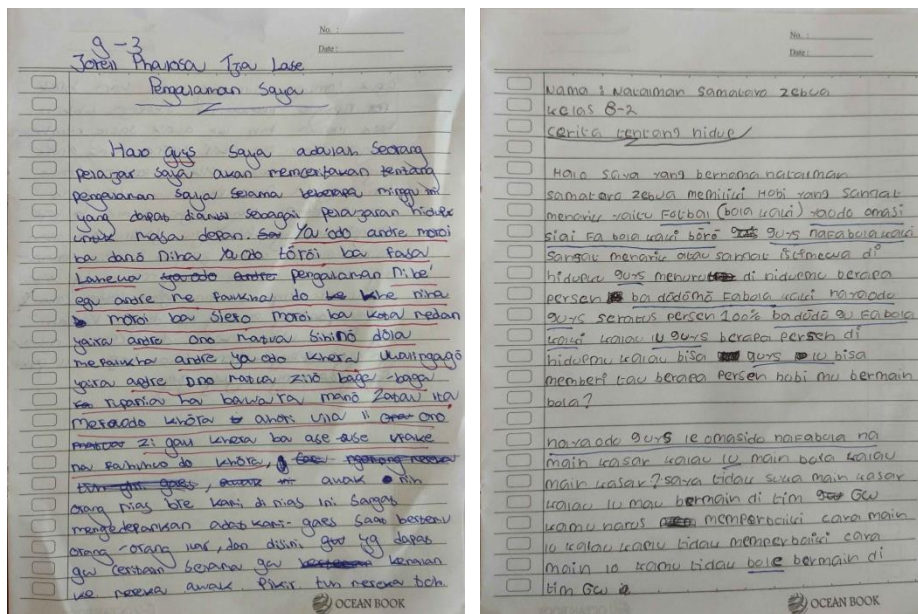 No. :
Date :
9-3
Joren Pharosa Tza Lase
Pengalaman Saya
Halo guys saya adalah seorang
pelajar saya akan menceritakan tentang
pengalaman saya selama beberapa minggu ini
yang dapat diambil sebagai pelajaran hidup
untuk masa depan. Ya'odo andre moroi
ba danö niha ya'odo töröi ba fasa
pengalaman nibe'
egu andre me falukha do khe niha
moroi ba moroi ba kota medan
yaira andre ono matua sihinö döla
me falukha andre ya'odo khera
yaira andre ono matua zilö baga-baga
ha
mera'odo khöra ono
zi gau khera ba ase-ase
na do khöre, awak nih
orang nias ble kami di nias ini sangat
mengedepankan adat kami gaes saat bertemu
orang-orang luar, dan disini yg dapat
gw ceritain selama gw kenalan
ke mereka awak pikir tuh mereka tch.
OCEAN BOOK
No. :
Date :
Nama : Nataiman Samataro Zebua
kelas 8-2
cerita tentang hidup
Halo saya yang bernama nataiman
samataro zebua memiliki Hobi yang sangat
menarik yaitu Fotbal (bola kaki) raodo omasi
siai Fa bola kaki börö guys nafabola kaki
sangat menarik atau sangat istimewa di
hidupku guys menuru di hidupmu berapa
persen ba dödömö Fabola kaki haraodo
guys seratus persen 100% ba dödö gu Fabola
kaki kalau lu guys berapa persen di
hidupmu kalau bisa guys lu bisa
memberi tau berapa persen hobi mu bermain
bola?
haraodo guys le omasido nafabola na
main kasar kalau lu main bola kalau
main kasar? saya tidak suka main kasar
kalau lu mau bermain di tim Gw
kamu harus memperbaiki cara main
lu kalau kamu tidak memperbaiki cara
main lu kamu tidak bole bermain di
tim Gw
OCEAN BOOK